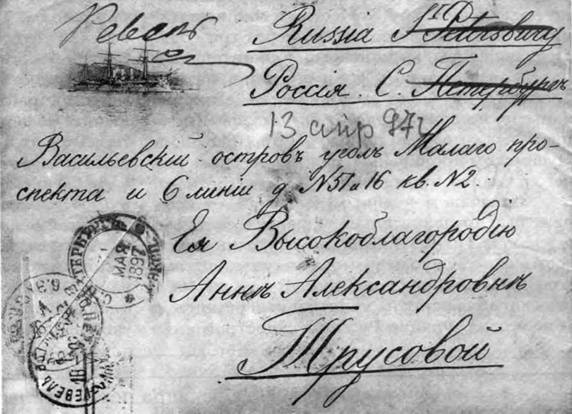 Ревель
Russia St Petersburg
Россія. С. Петербургъ
13 апр 97г
Васильевскій островъ уголъ Малаго про-
спекта и 6 линіи д. N51 и 16 кв. N2.
Ея Высокоблагородію
Аннѣ Александровнѣ
Трусовой
МАЯ
1897
РЕВЕЛЬ